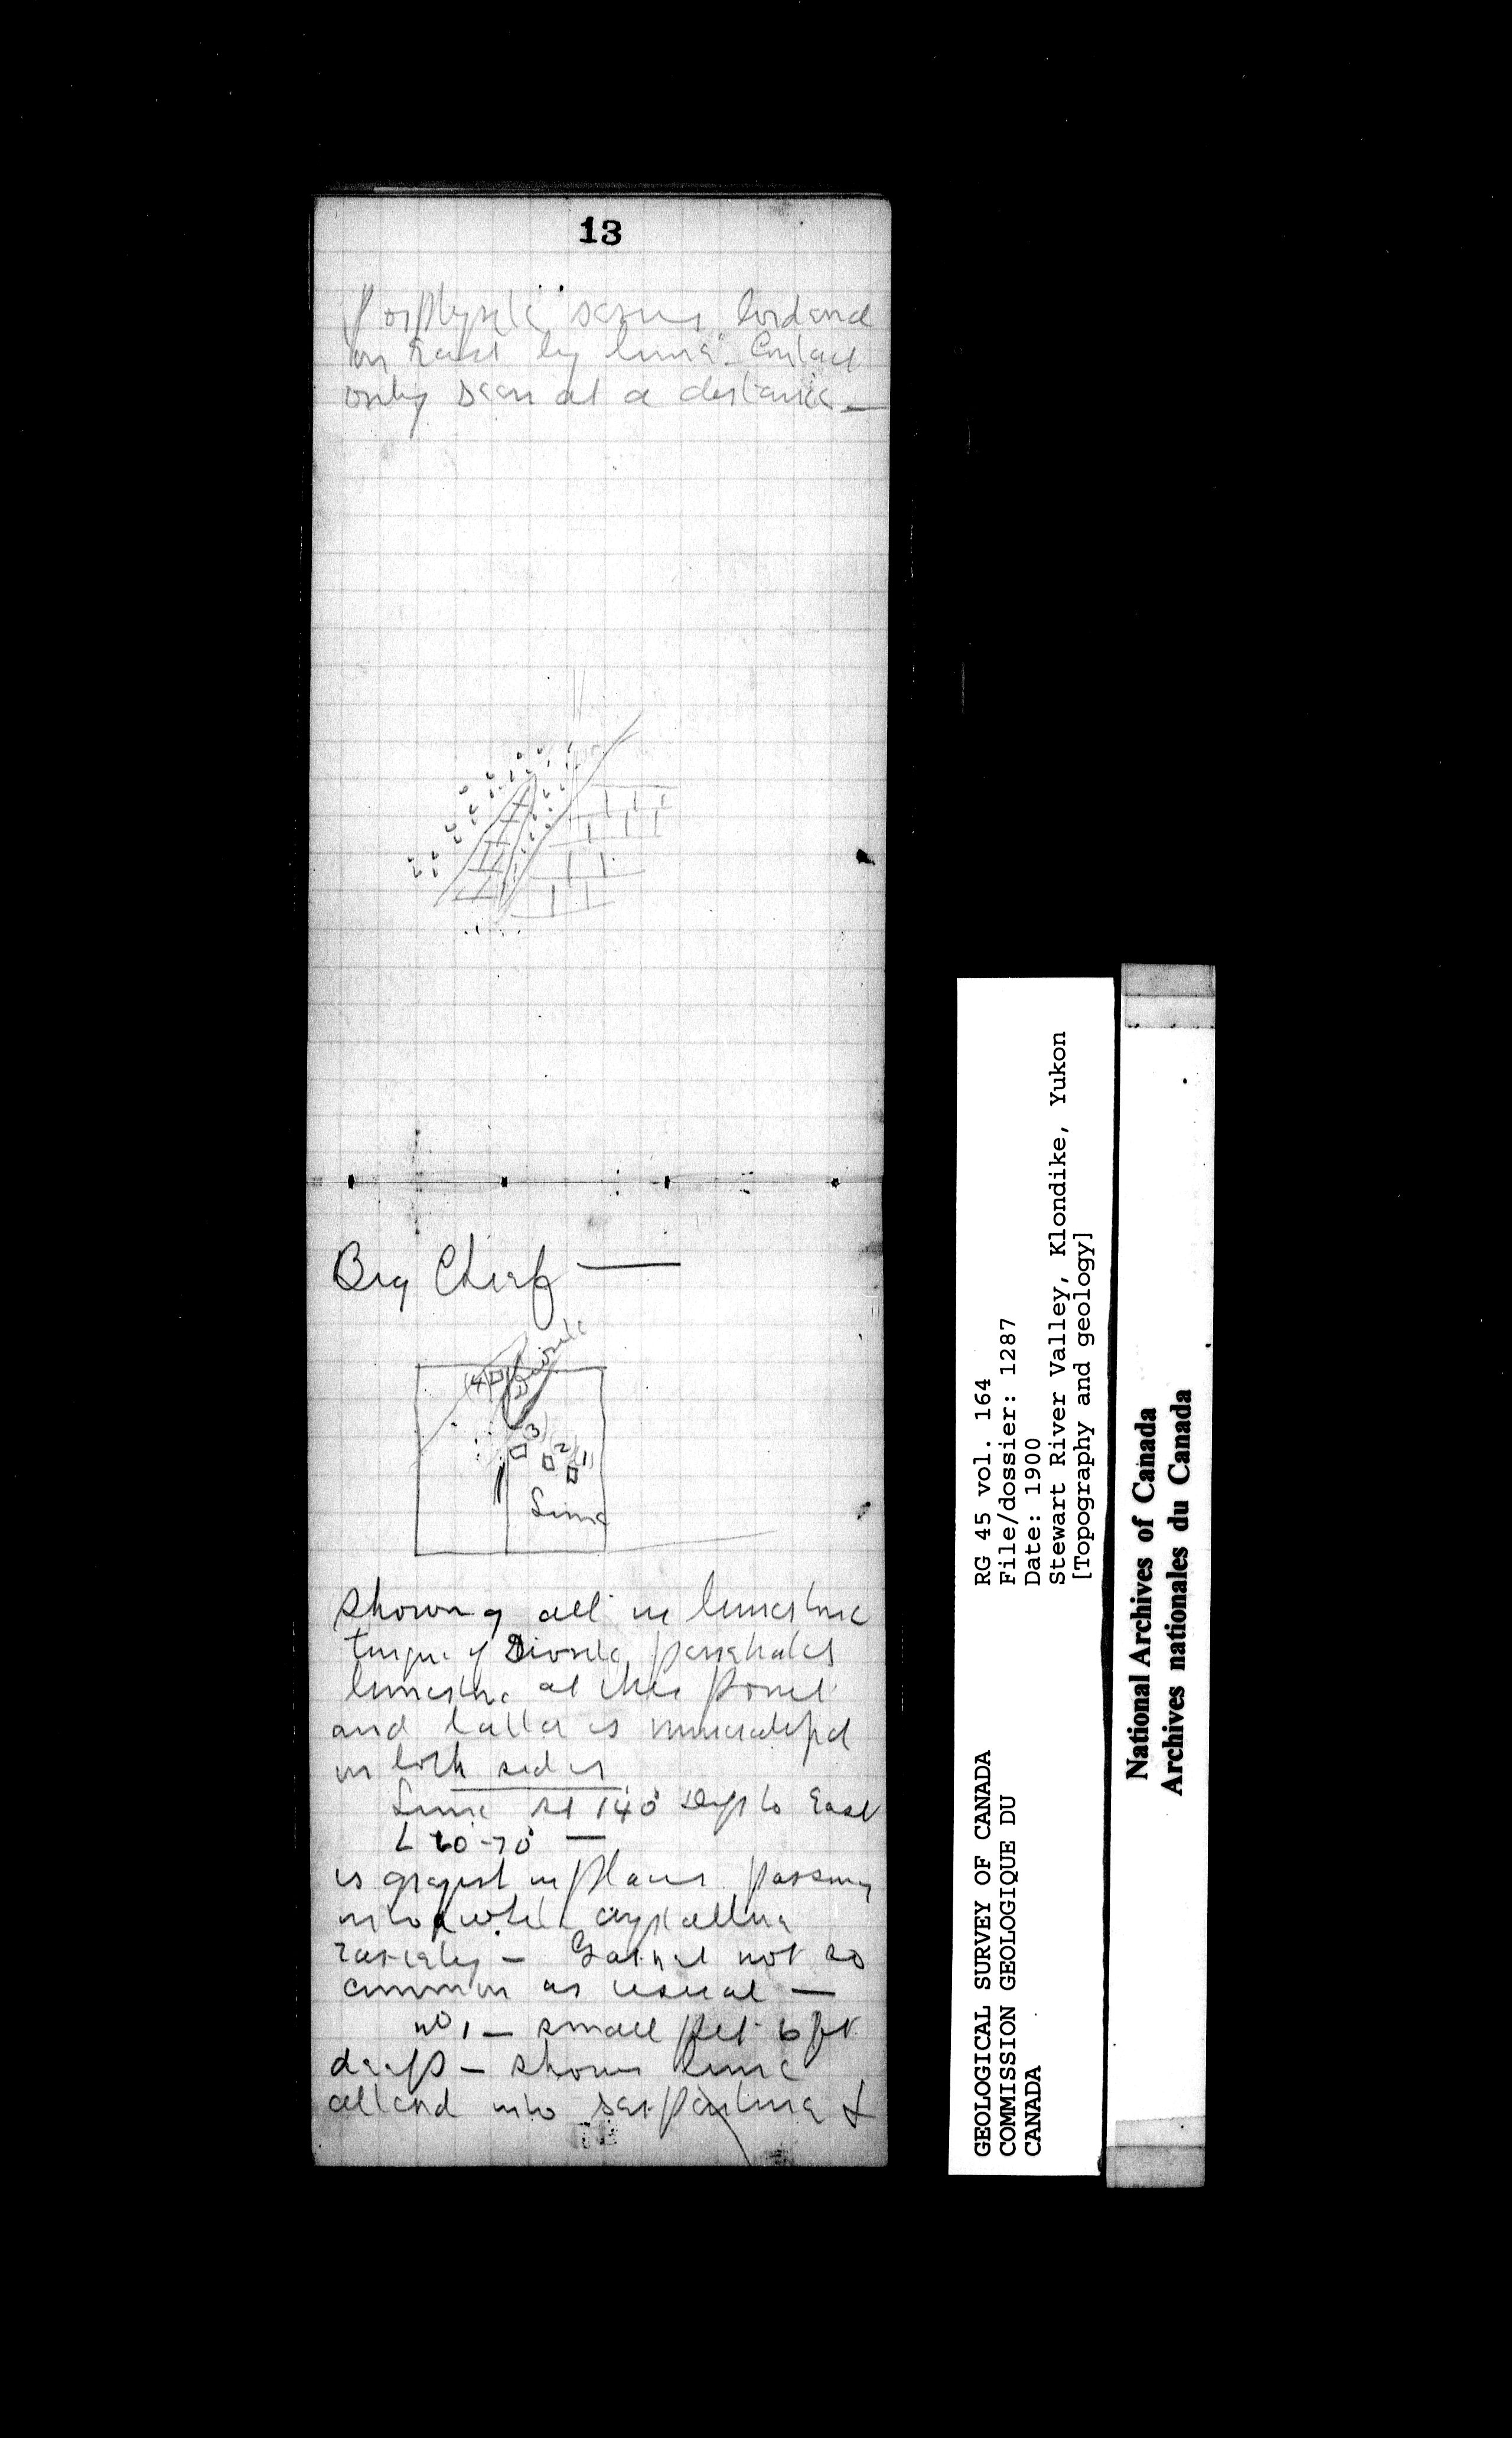 13
Porphyrite series bordered
on East by lime. Contact
only seen at a distance —
Big Chief —
Diorite
(4)
(3)
(2)
(1)
Lime
showing all in limestone
tongue of Diorite penetrates
limestone at this point
and latter is mineralized
on both sides
Lime st 140° Dips to East
L 60-70° —
is grayish in places passing
into white crystalline
variety — Garnet not so
common as usual —
No 1 — small pit 6 ft
deep — shows lime
altered into serpentine &
GEOLOGICAL SURVEY OF CANADA
COMMISSION GEOLOGIQUE DU
CANADA
RG 45 vol. 164
File/dossier: 1287
Date: 1900
Stewart River Valley, Klondike, Yukon
[Topography and geology]
National Archives of Canada
Archives nationales du Canada